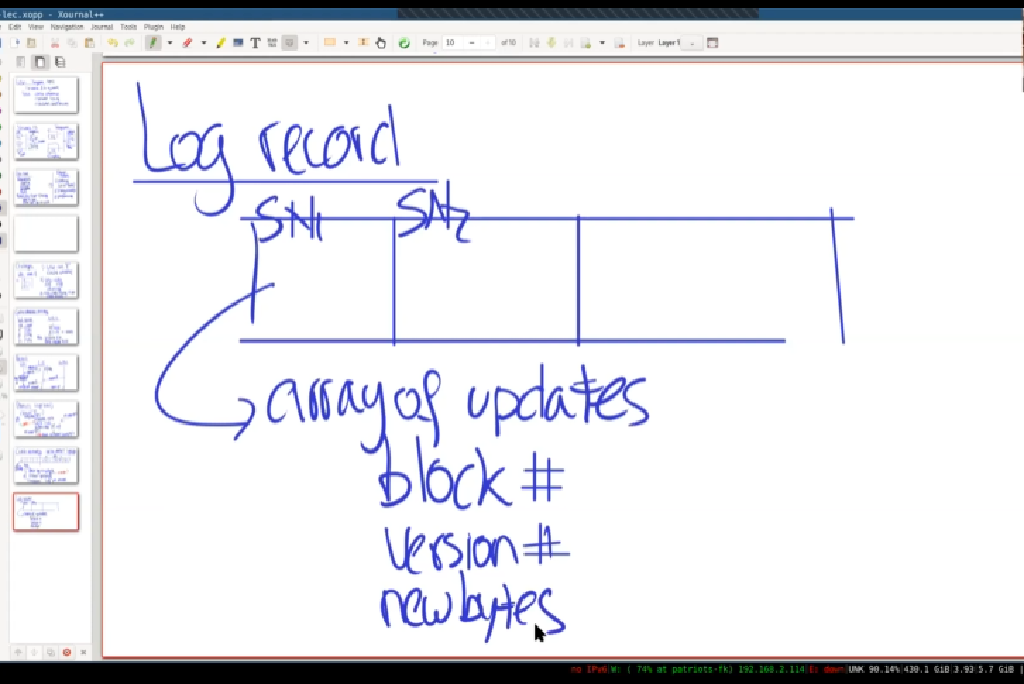 lec.xopp - Xournal++
Edit View Navigation Journal Tools Plugin Help
Page 10 of 10 Layer Layer 1
Log record
SN1 SN2
array of updates
block #
version #
new bytes
no IPv6 W: ( 74% at patriots-fk) 192.168.2.114 E: down UNK 90.14% 430.1 GiB 3.93 5.7 GiB